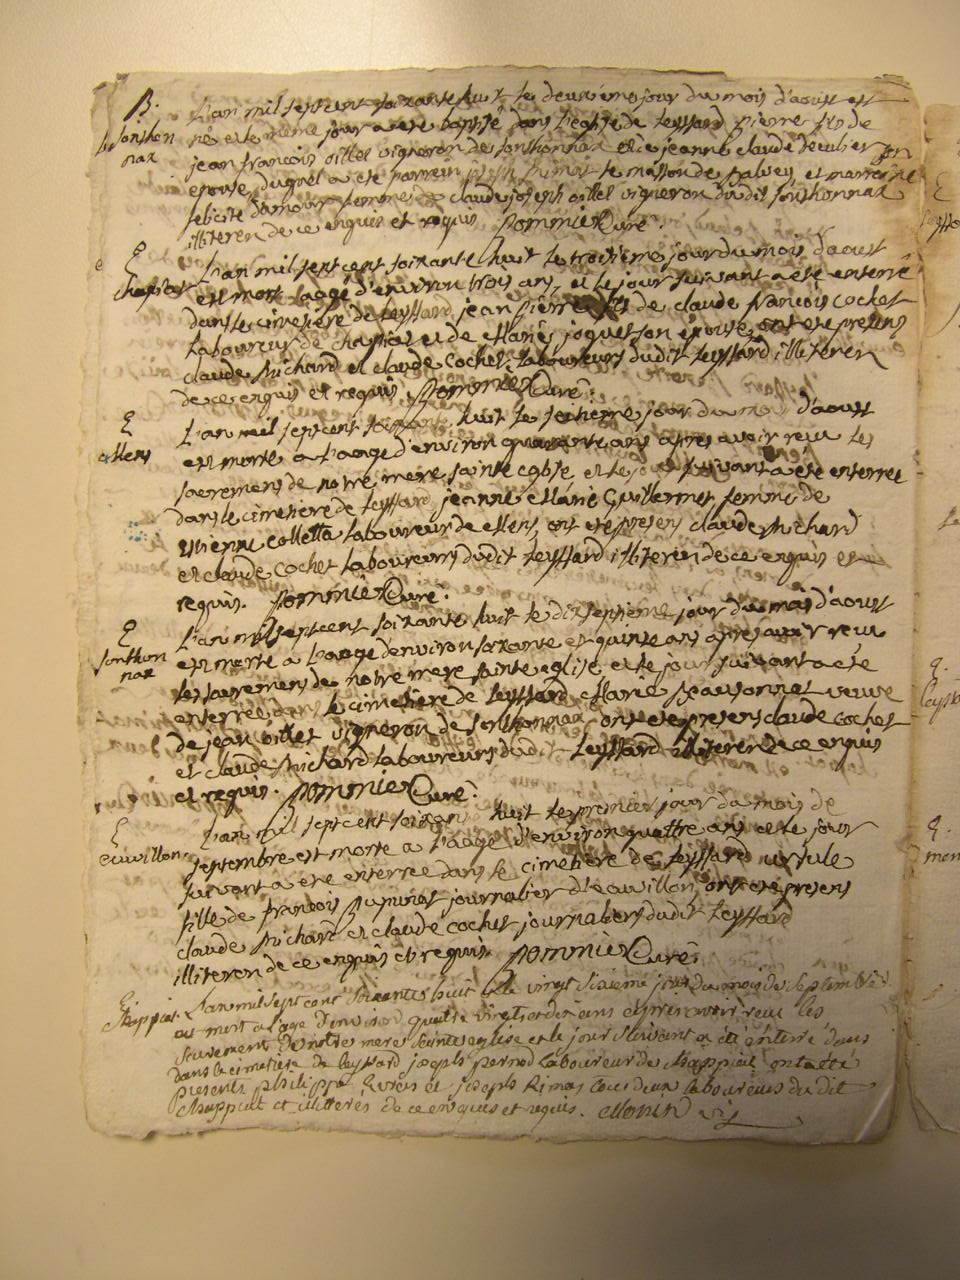 B.
L'an mil sept cent soixante huit le deuxieme jour du mois d'aoust est
Sonthon
nax
né et le même jour a été baptisé dans l'eglise de Leyssard pierre fils de
jean francois oillet vigneron de sonthonnax et de jeanne claude
epouse, duquel a été parrein de et marreine
felicité d'amour femme de claude joseph oillet vigneron dudit sonthonnax
illiteren de ce enquis et requis. pommier Curé.
E
chapiat
L'an mil sept cent soixante huit le troisieme jour du mois d'aoust
est mort a l'aage d'environ trois ans, et le jour suivant a été enterré
dans le cimetiere de Leyssard jean pierre fils de claude francois cochet
laboureur de chapiat et de Marie joquet son epouse, ont eté presens
claude Michard et claude cochet laboureurs dudit Leyssard illiteren
de ce enquis et requis. pommier Curé.
E
Mens
L'an mil sept cent soixante huit le jour du mois d'aoust
est morte a l'aage d'environ quarante ans apres avoir reçu les
sacremens de notre mere sainte eglise, et le jour suivant a été enterrée
dans le cimetiere de Leyssard jeanne Marie Guillermet femme de
colletta laboureur de Mens, ont eté presens claude Michard
et claude cochet laboureurs dudit Leyssard illiteren de ce enquis et
requis. pommier Curé.
E
Sonthon
nax
L'an mil sept cent soixante huit le dix septieme jour du mois d'aoust
est morte a l'aage d'environ soixante et quinze ans apres avoir reçu
les sacremens de notre mere sainte eglise, et le jour suivant a été
enterrée dans le cimetiere de Leyssard Marie veuve
de jean oillet vigneron de Sonthonnax, ont eté presens claude cochet
et claude Michard laboureurs dudit Leyssard illiteren de ce enquis
et requis. pommier Curé.
E
ecuvillon
L'an mil sept cent soixante huit le premier jour du mois de
septembre est morte a l'aage d'environ quattre ans et le jour
suivant a été enterrée dans le cimetiere de Leyssard ursule
fille de francois journalier d'ecuvillon, ont eté presens
claude Michard et claude cochet journaliers dudit Leyssard
illiteren de ce enquis et requis. pommier Curé.
E
Chappiat.
L'an mil sept cent soixante huit et le vingt sixieme jour du mois de septembre
est mort a l'age d'environ quatre vingt et dix ans apres avoir reçu les
sacrement de notre mere sainte eglise et le jour suivant a été enterré dans
dans le cimetiere de leyssard joseph pernod laboureur de chappiat ont été
presents philippe et joseph tous deux laboureurs du dit
Chappiat et illiterés de ce enquis et requis. Monin vic